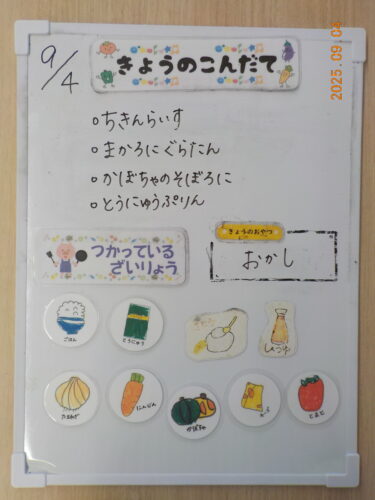 9/4
きょうのこんだて
2025.09.04
○ちきんらいす
○まかろにぐらたん
○かぼちゃのそぼろに
○とうにゅうぷりん
つかっている
ざいりょう
きょうのおやつ
おかし
ごはん
とうにゅう
たまねぎ
にんじん
かぼちゃ
とまと